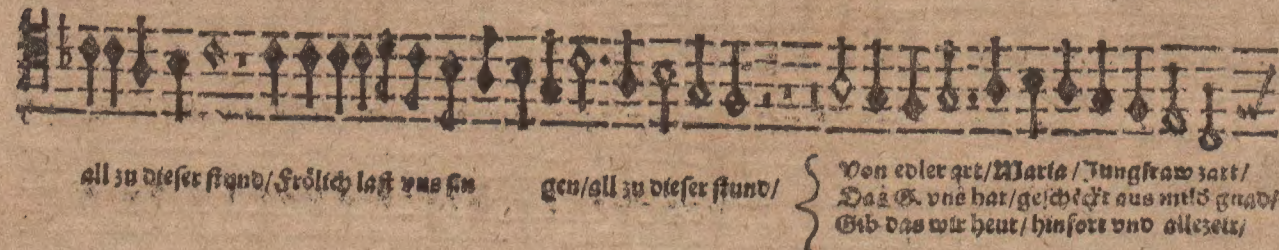 all zu dieser stund/Frölich last vns sin gen/all zu dieser stund/
Von edler art/Maria/Jungfraw zart/
Das G. vns hat/geschēckt aus mild gnad/
Gib das wir heut/hinfort vnd allezeit/